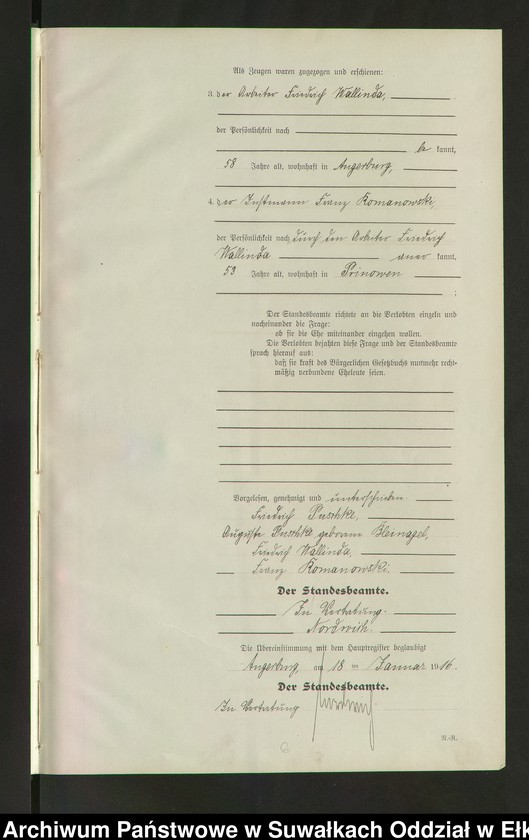 Als Zeugen waren zugezogen und erschienen:
3. der Arbeiter Friedrich Wallinda,
der Persönlichkeit nach
be kannt,
58 Jahre alt, wohnhaft in Angerburg,
4. der Instmann Franz Romanowski,
der Persönlichkeit nach durch den Arbeiter Friedrich
Wallinda aner kannt,
53 Jahre alt, wohnhaft in Prinowen
;
Der Standesbeamte richtete an die Verlobten einzeln und
nacheinander die Frage:
ob sie die Ehe miteinander eingehen wollen.
Die Verlobten bejahten diese Frage und der Standesbeamte
sprach hierauf aus:
daß sie kraft des Bürgerlichen Gesetzbuchs nunmehr recht-
mäßig verbundene Eheleute seien.
Vorgelesen, genehmigt und unterschrieben.
Friedrich Puschke,
Auguste Puschke geborene
Friedrich Wallinda,
Franz Romanowski.
Der Standesbeamte.
In Vertretung.
Die Übereinstimmung mit dem Hauptregister beglaubigt
Angerburg, am 18 ten Januar 1916.
Der Standesbeamte.
In Vertretung
6
A.-R.
Archiwum Państwowe w Suwałkach Oddział w Ełk